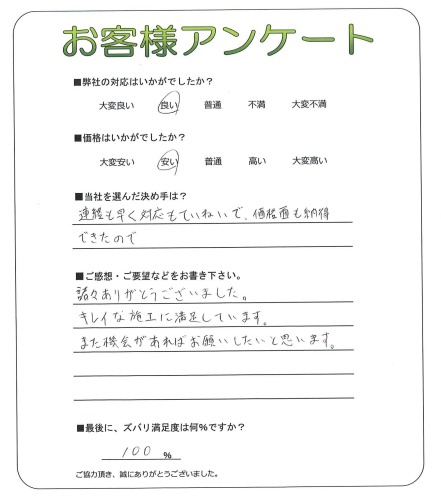 お客様アンケート
■弊社の対応はいかがでしたか？
大変良い 良い 普通 不満 大変不満
■価格はいかがでしたか？
大変安い 安い 普通 高い 大変高い
■当社を選んだ決め手は？
連絡も早く対応もていねいで、価格面も納得
できたので
■ご感想・ご要望などをお書き下さい。
諸々ありがとうございました。
キレイな施工に満足しています。
また機会があればお願いしたいと思います。
■最後に、ズバリ満足度は何％ですか？
100 ％
ご協力頂き、誠にありがとうございました。